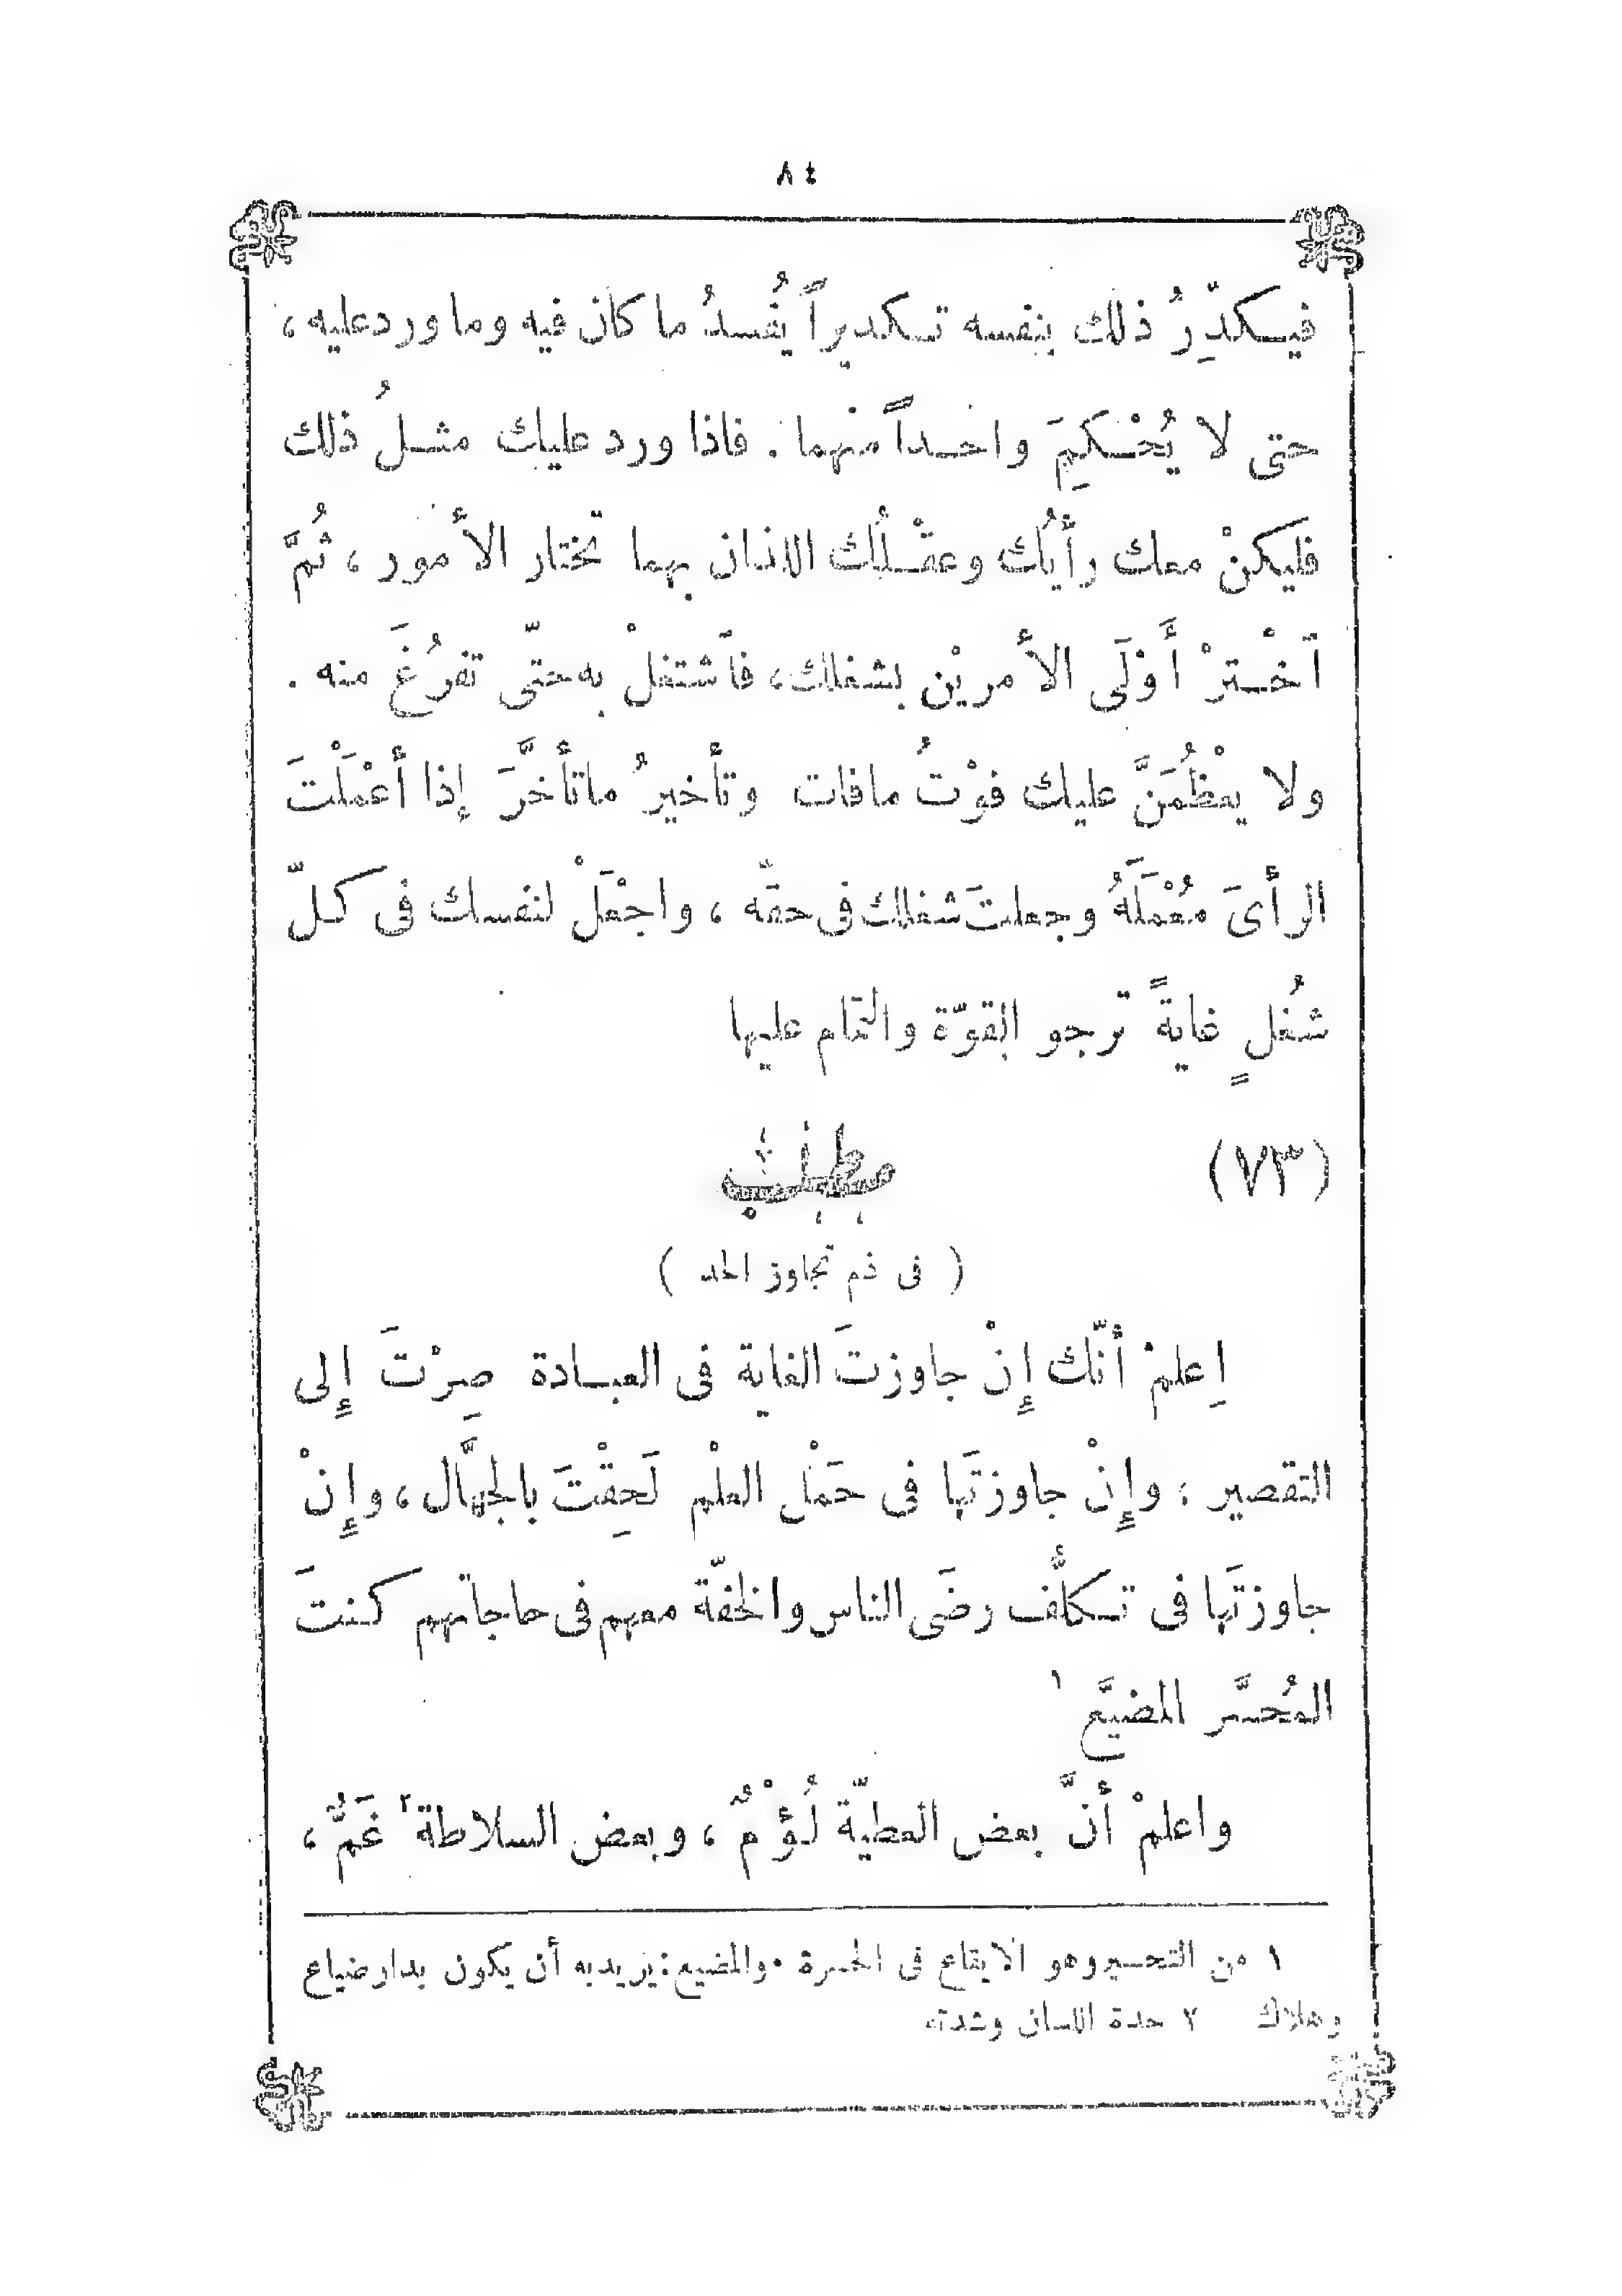 ٨٤
فيكدِّرُ ذلك بنفسه تكديراً يُفسدُ ما كان فيه وما ورد عليه ،
حتى لا يُحْكِمَ واحداً منهما . فاذا ورد عليك مثلُ ذلك
فليكنْ معك رأيُك وعقْلُك اللذان بهما تختار الأمور ، ثُمَّ
آخْترْ أَوْلَى الأمريْن بشغلك ، فآشتغلْ به حتّى تفرُغَ منه .
ولا يعْظُمَنَّ عليك فوْتُ مافات وتأخيرُ ماتأخَّرَ إذا أعْمَلْتَ
الرأىَ مُعْمَلَهُ وجعلتَ شغلك فى حقّه ، واجْعَلْ لنفسك فى كلّ
شُغلٍ غايةً ترجو القوّة والتمام عليها
(٧٣) مطلب
( فى ذم تجاوز الحد )
اِعلمْ أنّك إِنْ جاوزتَ الغاية فى العبادة صِرْتَ إِلى
التقصير ؛ وإِنْ جاوزتَها فى حَمْل العلْم لَحِقْتَ بالجهَّال ، وإِنْ
جاوزتَها فى تكلُّف رضَى الناس والخفّة معهم فى حاجاتهم كنتَ
المُحسَّر المضيَّع ١
واعلمْ أنَّ بعض العطيّة لُؤْمٌ ، وبعض السلاطة ٢ غَمٌّ ،
١ من التحسير وهو الايقاع فى الحسرة . والمضيع : يريد به أن يكون بدار ضياع
وهلاك ٢ حدة اللسان وشدته